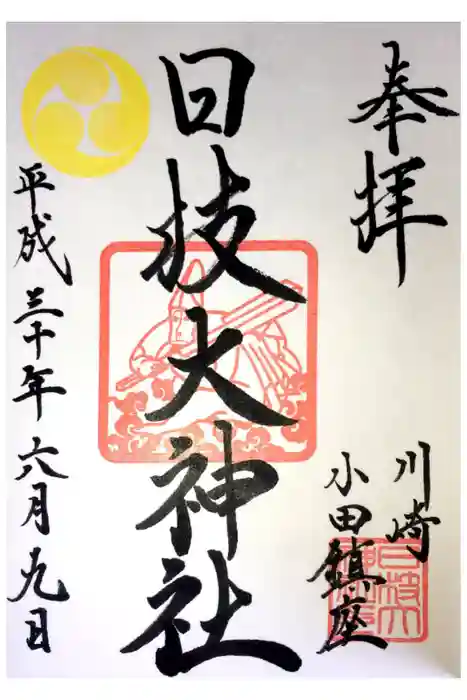 奉拝
川崎
小田鎮座
日枝大神社
平成三十年六月九日